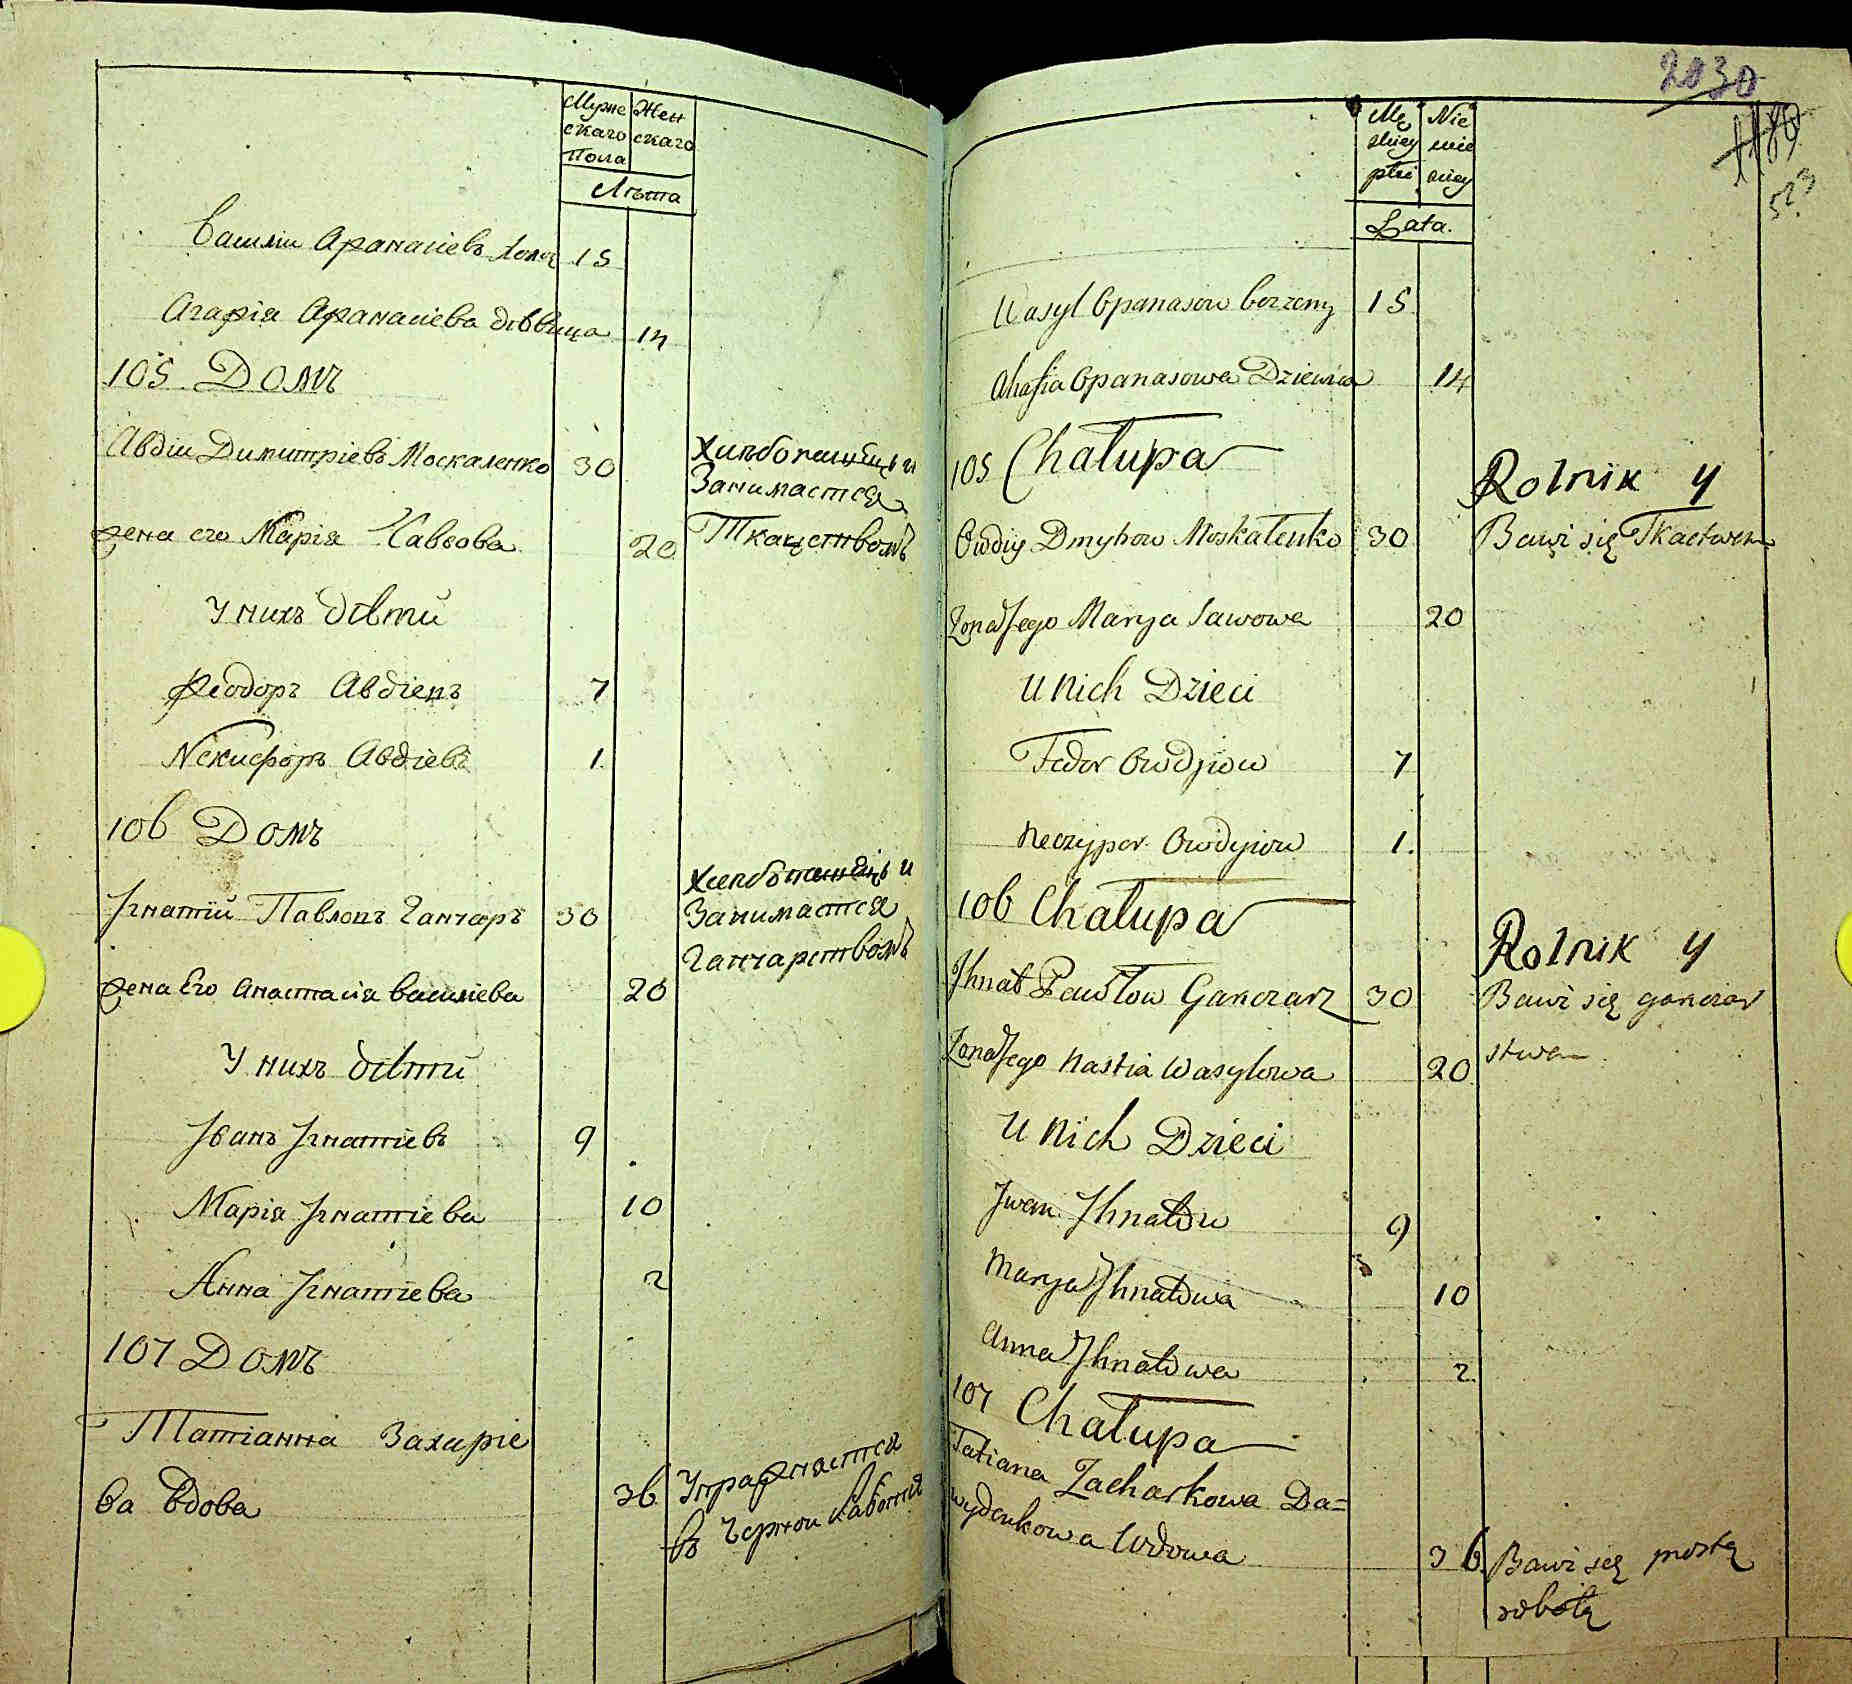 Муже
скаго
Пола
Жен
скаго
Лѣта
Василіи Афанасіевъ 15
Агафія Афанасіева дѣвица 14
105 Домъ
Авдіи Димитріевъ Москаленко 30 Хлебопашецъ и
Занимается
жена его Марія Савкова 20 Ткачествомъ
У нихъ дѣти
Феодоръ Авдіевъ 7
Никифоръ Авдіевъ 1
106 Домъ
Хлебопашецъ и
Игнатій Павловъ Ганчаръ 30 Занимается
Ганчарствомъ
жена Его Анастасія Василіева 20
У нихъ дѣти
Іванъ Игнатіевъ 9
Марія Игнатіева 10
Анна Игнатіева 2
107 Домъ
Татіанна Захаріе
ва Вдова 36 Упражняется
въ Черной Работи
2030
1189
523
Mę
skiey
płci
Nie
wie
sciey
Lata.
Wasyl Opanasow bezzenny 15
Ahafia Opanasowa Dziewica 14
105 Chałupa
Rolnik y
Owdiy Dmytrow Moskalenko 30 Bawi się Tkactwem
Zona Jego Marya Sawowa 20
U nich Dzieci
Fedor Owdyiow 7
Neczypor Owdyiow 1.
106 Chałupa
Rolnik y
Ihnat Pawłow Ganczarz 30 Bawi się gonczar
stwem
Zona Jego Nastia Wasylowa 20
U nich Dzieci
Iwan Ihnatow 9
Marya Ihnatowa 10
Anna Ihnatowa 2
107 Chałupa
Tatiana Zacharkowa Da=
wydenkowa Wdowa 36 Bawi się prostą
robotą